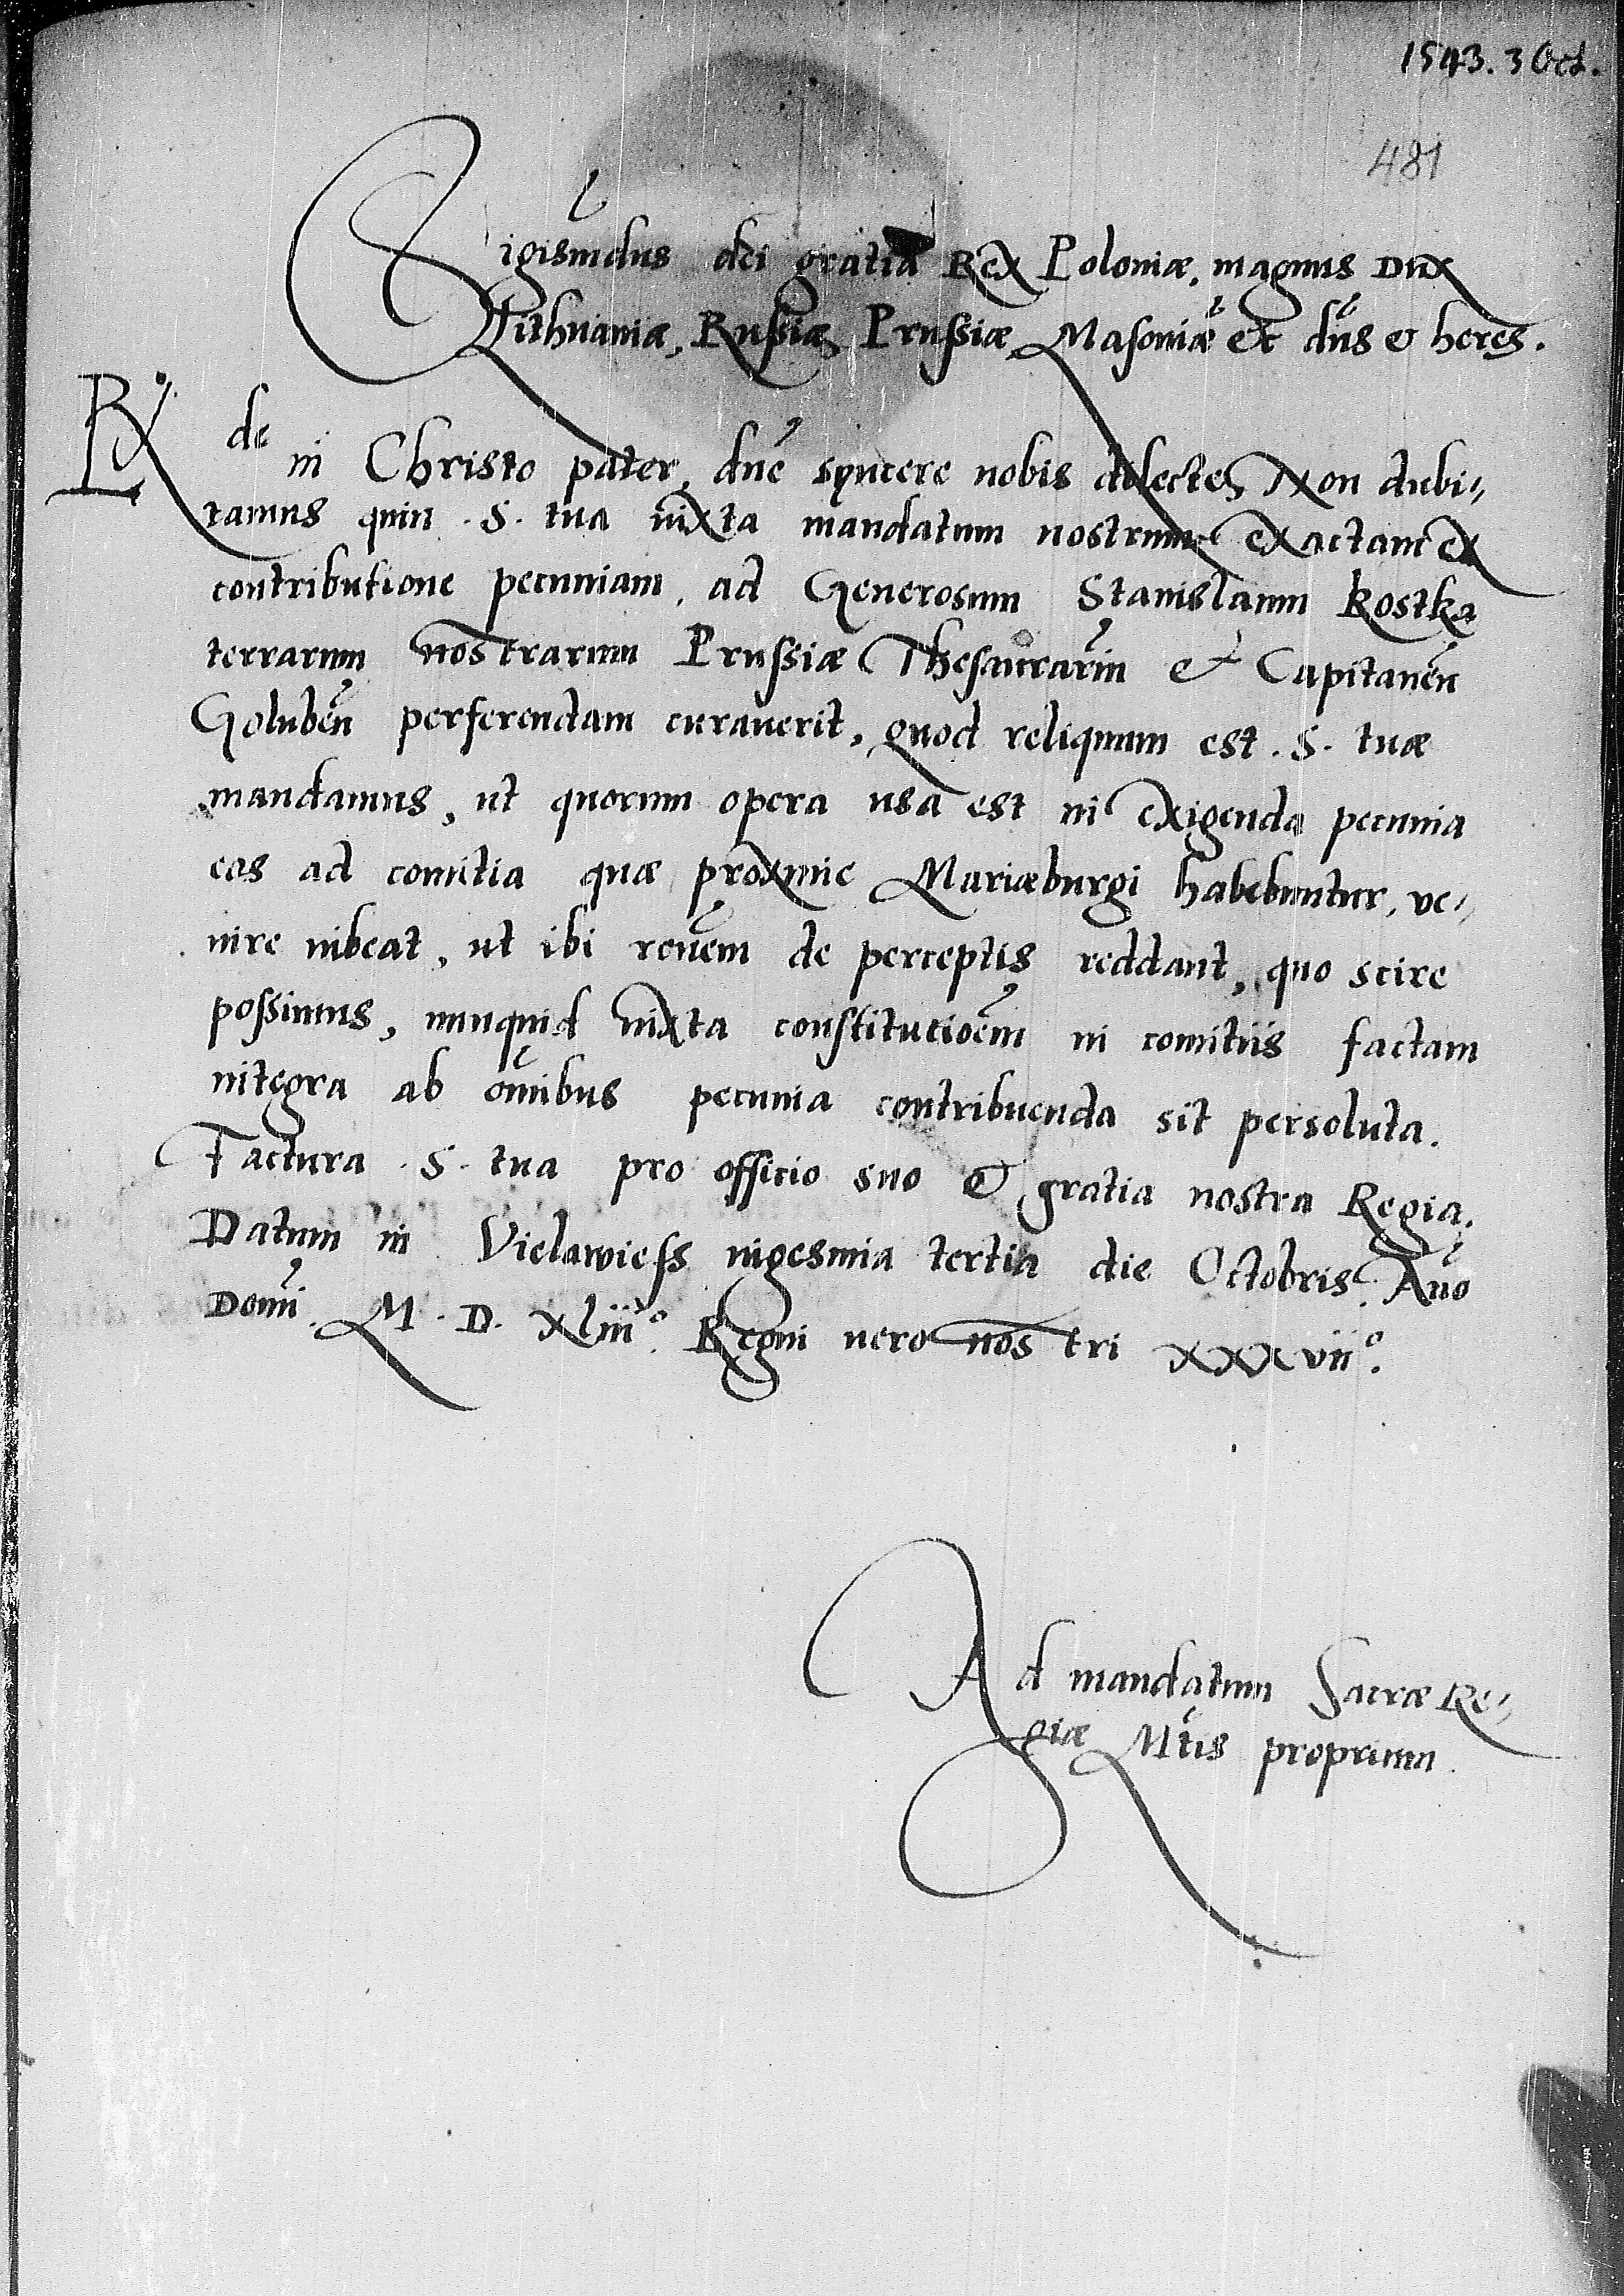 1543. 3 Oct.
481
Sigismdus dei gratia Rex Poloniæ, magnus Dux
Lithuaniæ, Russiæ, Prussiæ, Masoniæ etc dns & heres.
Rx de in Christo pater, dne syncere nobis dilecte, Non dubi„
tamus quin .S. tua iuxta mandatum nostrum exactam ex
contributione pecuniam, ad Generosum Stanislaum Kostka
terrarum nostrarum Prussiæ Thesaurarin & Capitanen
Goluben perferendam curaverit, quod reliquum est .S. tuæ
mandamus, ut quorum opera usa est in exigenda pecunia
eos ad comitia quæ proxime Mariæburgi habebuntur, ve„
nire iubeat, ut ibi ronem de perceptis reddant, quo scire
possimus, nunquid iuxta constitucioem in comitiis factam
integra ab omibus pecunia contribuenda sit persoluta.
Factura .S. tua pro officio suo & gratia nostra Regia.
Datum in Vielawiess vigesima tertia die Octobris. Ano
Domi. M. D. xliii°. Regni vero nostri xxxvii°.
Ad mandatum Sacræ Re„
giæ Mtis proprium.